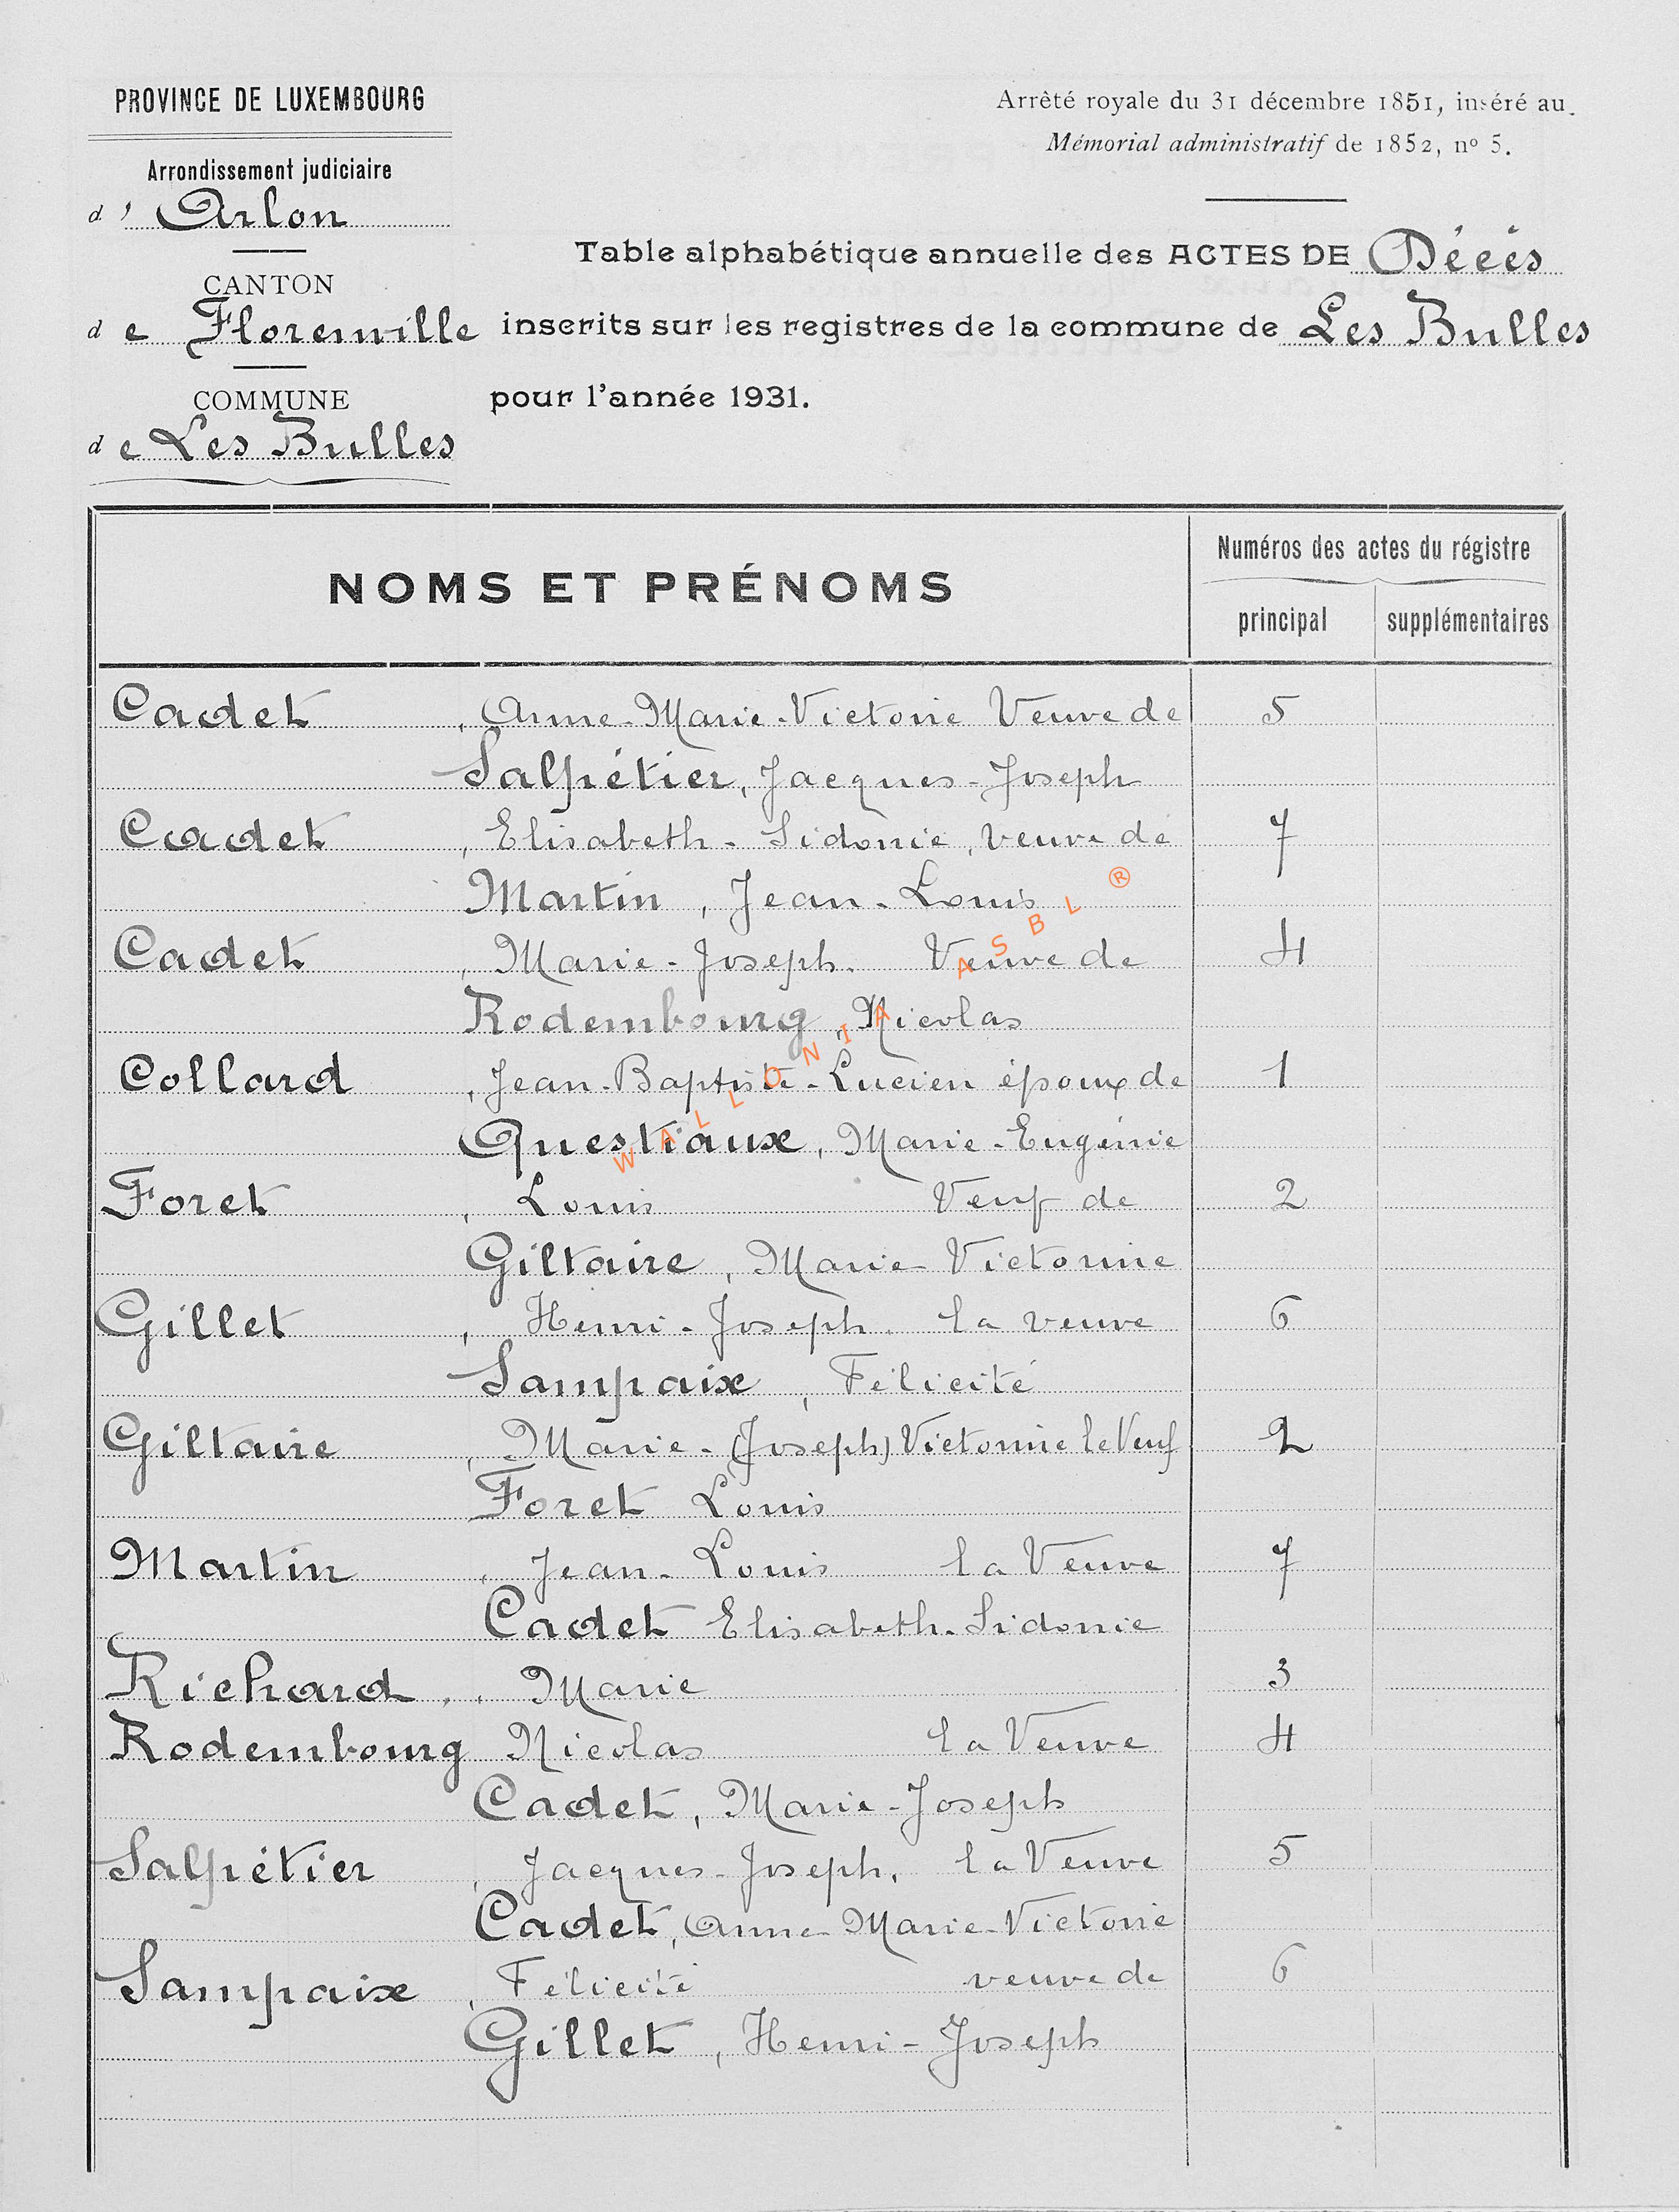 PROVINCE DE LUXEMBOURG
Arrondissement judiciaire
d' Arlon
CANTON
de Florenville
COMMUNE
de Les Bulles
Arrêté royale du 31 décembre 1851, inséré au
Mémorial administratif de 1852, nº 5.
Table alphabétique annuelle des ACTES DE Décès
inscrits sur les registres de la commune de Les Bulles
pour l'année 1931.
NOMS ET PRÉNOMS
Numéros des actes du régistre
principal supplémentaires
Cadet, Anne-Marie-Victorie Veuve de 5
Salpétier, Jacques-Joseph
Cadet, Elisabeth-Sidonie, veuve de 7
Martin, Jean-Louis
Cadet, Marie-Joseph. Veuve de 4
Rodembourg, Nicolas
Collard, Jean-Baptiste-Lucien époux de 1
Questiaux, Marie-Eugénie
Foret, Louis Veuf de 2
Giltaire, Marie-Victorine
Gillet, Henri-Joseph. la veuve 6
Sampaix, Félicité
Giltaire, Marie-(Joseph) Victorine le Veuf 2
Foret Louis
Martin, Jean-Louis la Veuve 7
Cadet Elisabeth-Sidonie
Richard, Marie 3
Rodembourg Nicolas la Veuve 4
Cadet, Marie-Joseph
Salpétier, Jacques-Joseph, la Veuve 5
Cadet, Anne-Marie-Victorie
Sampaix, Félicité veuve de 6
Gillet, Henri-Joseph
WALLONIA ASBL ®